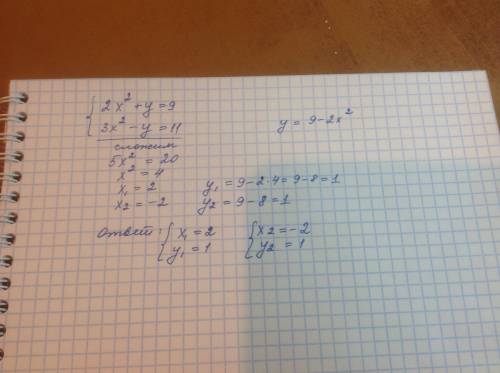 { 2x² + y = 9
3x² − y = 11
y = 9 − 2x²
сложим
5x² = 20
x² = 4
x₁ = 2
x₂ = −2
y₁ = 9 − 2·4 = 9 − 8 = 1
y₂ = 9 − 8 = 1
ответ: { x₁ = 2 { x₂ = −2
y₁ = 1 y₂ = 1